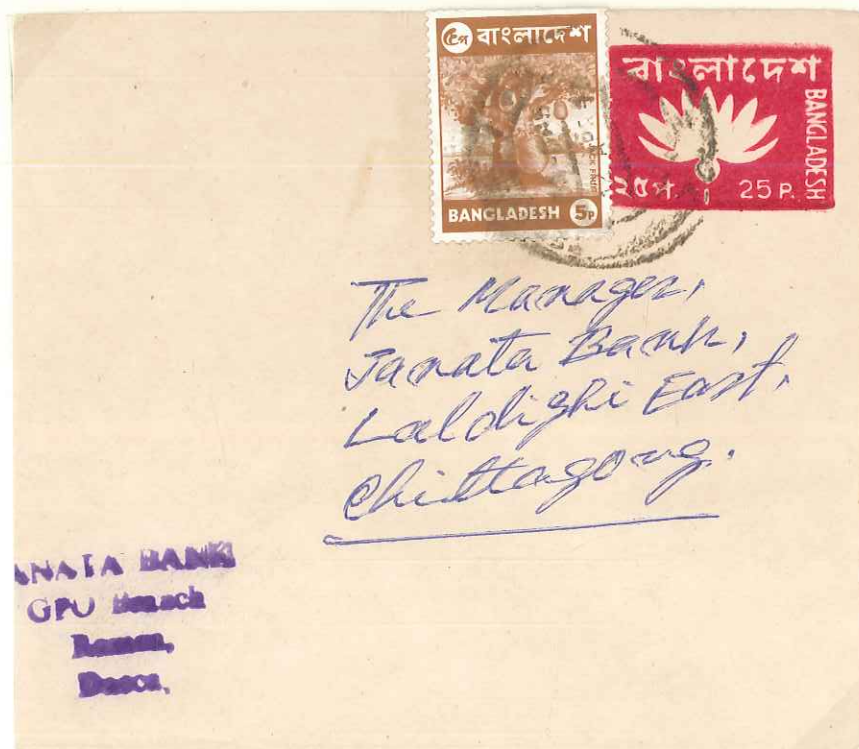 ৫প বাংলাদেশ
JACK FRUIT
BANGLADESH 5P
বাংলাদেশ
BANGLADESH
২৫প. 25 P.
The Manager,
Janata Bank,
Laldighi East,
Chittagong.
ANATA BANK
GPO Branch
Ramna,
Dacca.